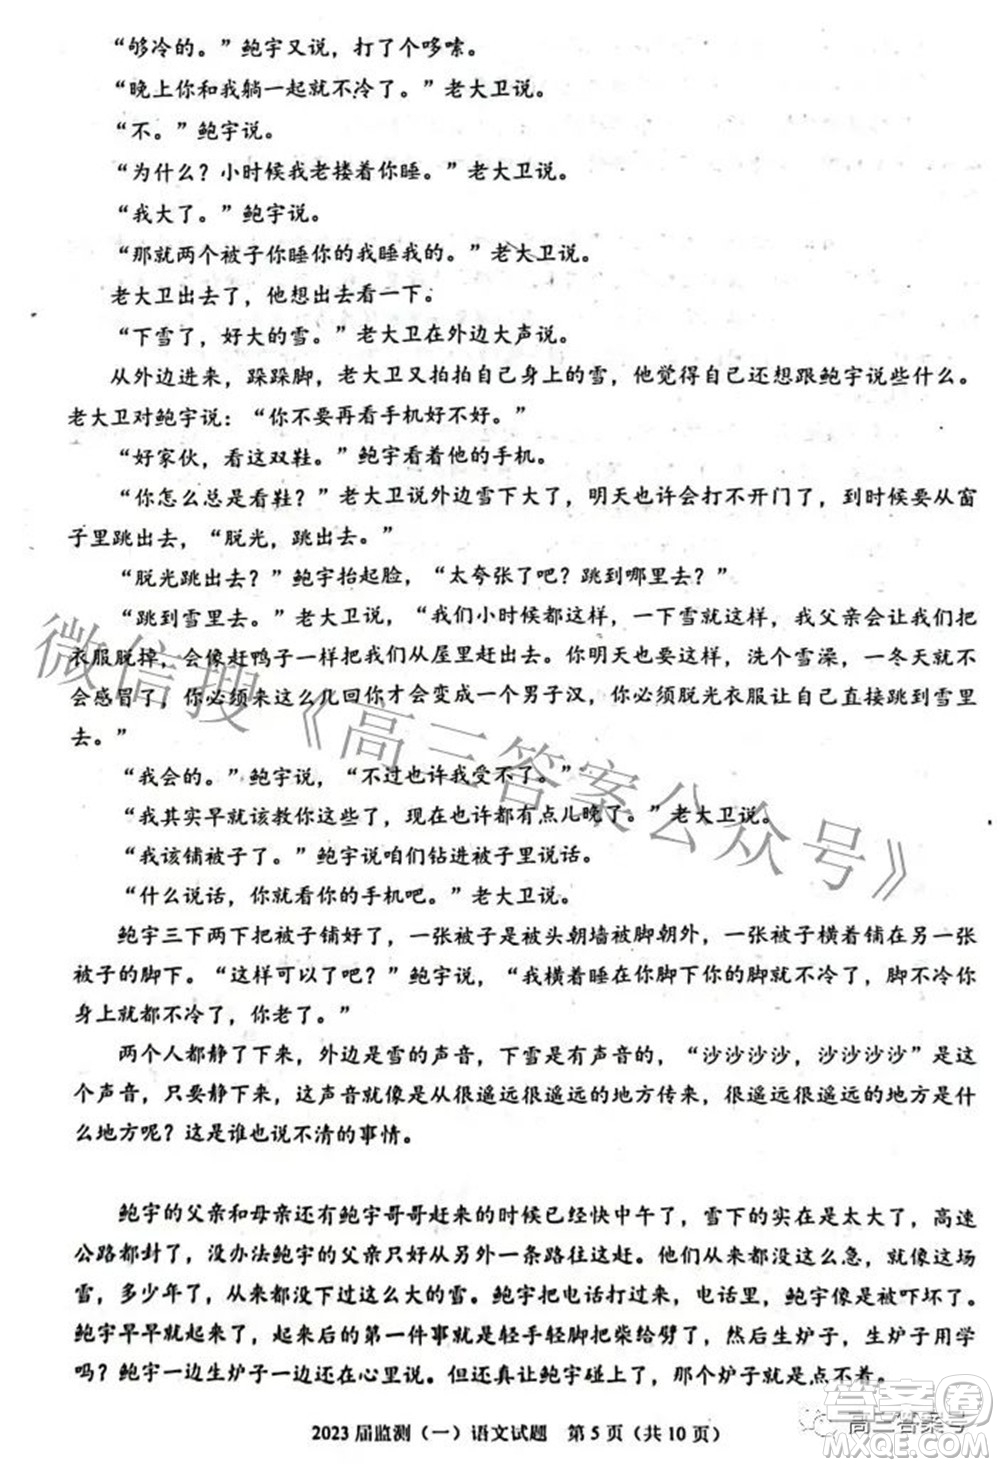 “够冷的。”鲍宇又说，打了个哆嗦。
“晚上你和我躺一起就不冷了。”老大卫说。
“不。”鲍宇说。
“为什么？小时候我老搂着你睡。”老大卫说。
“我大了。”鲍宇说。
“那就两个被子你睡你的我睡我的。”老大卫说。
老大卫出去了，他想出去看一下。
“下雪了，好大的雪。”老大卫在外边大声说。
从外边进来，跺跺脚，老大卫又拍拍自己身上的雪，他觉得自己还想跟鲍宇说些什么。
老大卫对鲍宇说：“你不要再看手机好不好。”
“好家伙，看这双鞋。”鲍宇看着他的手机。
“你怎么总是看鞋？”老大卫说外边雪下大了，明天也许会打不开门了，到时候要从窗
子里跳出去，“脱光，跳出去。”
“脱光跳出去？”鲍宇抬起脸，“太夸张了吧？跳到哪里去？”
“跳到雪里去。”老大卫说，“我们小时候都这样，一下雪就这样，我父亲会让我们把
衣服脱掉，会像赶鸭子一样把我们从屋里赶出去。你明天也要这样，洗个雪澡，一冬天就不
会感冒了，你必须来这么几回你才会变成一个男子汉，你必须脱光衣服让自己直接跳到雪里
去。”
“我会的。”鲍宇说，“不过也许我受不了。”
“我其实早就该教你这些了，现在也许都有点儿晚了。”老大卫说。
“我该铺被子了。”鲍宇说咱们钻进被子里说话。
“什么说话，你就看你的手机吧。”老大卫说。
鲍宇三下两下把被子铺好了，一张被子是被头朝墙被脚朝外，一张被子横着铺在另一张
被子的脚下。“这样可以了吧？”鲍宇说，“我横着睡在你脚下你的脚就不冷了，脚不冷你
身上就都不冷了，你老了。”
两个人都静了下来，外边是雪的声音，下雪是有声音的，“沙沙沙沙，沙沙沙沙”是这
个声音，只要静下来，这声音就像是从很遥远很遥远的地方传来，很遥远很遥远的地方是什
么地方呢？这是谁也说不清的事情。
鲍宇的父亲和母亲还有鲍宇哥哥赶来的时候已经快中午了，雪下的实在是太大了，高速
公路都封了，没办法鲍宇的父亲只好从另外一条路往这赶。他们从来都没这么急，就像这场
雪，多少年了，从来都没下过这么大的雪。鲍宇把电话打过来，电话里，鲍宇像是被吓坏了。
鲍宇早早就起来了，起来后的第一件事就是轻手轻脚把柴给劈了，然后生炉子，生炉子用学
吗？鲍宇一边生炉子一边在心里说。但还真让鲍宇碰上了，那个炉子就是点不着。
2023届监测（一）语文试题 第5页（共10页）
微信搜《高三答案公众号》
高三答案号
答案圈
MXQE.COM